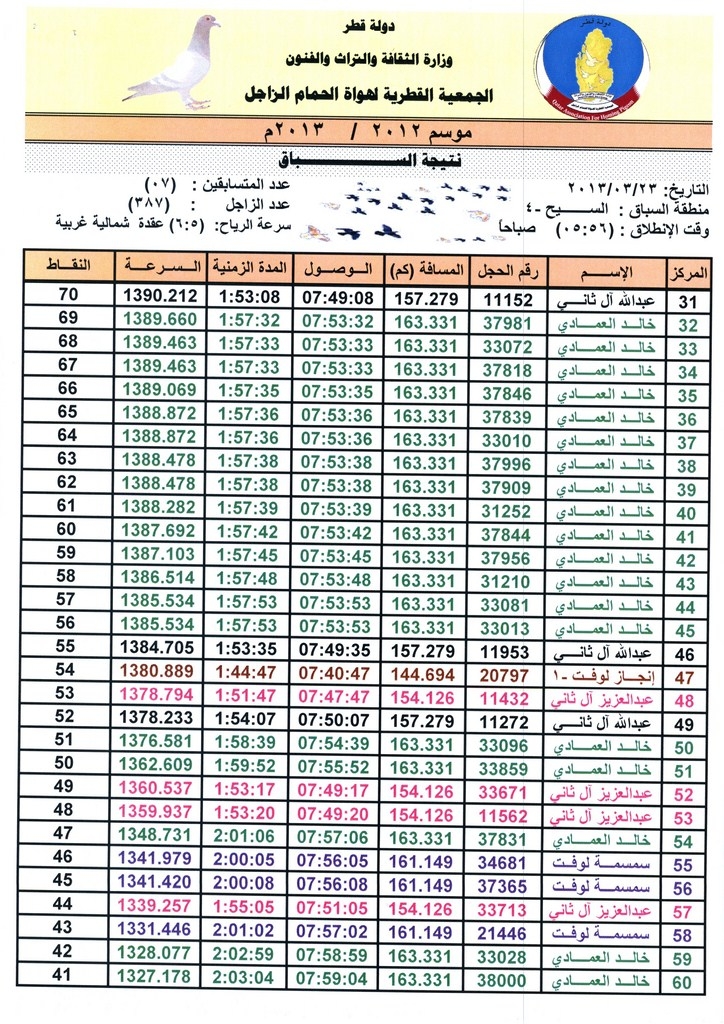 دولة قطر
وزارة الثقافة والتراث والفنون
الجمعية القطرية لهواة الحمام الزاجل
دولة قطر
Qatar Association For Homing Pigeon
موسم ٢٠١٢ / ٢٠١٣م
نتيجة الســـباق
التاريخ: ٢٠١٣/٠٣/٢٣ عدد المتسابقين : (٠٧)
منطقة السباق : السـيح -٤ عدد الزاجل : (٣٨٧)
وقت الإنطلاق : (٠٥:٥٦) صباحاً سرعة الرياح: (٦:٥) عقدة شمالية غربية
المركز الإسـم رقم الحجل المسافة (كم) الـوصـول المدة الزمنية السـرعـة النقاط
31 عبدالله آل ثاني 11152 157.279 07:49:08 1:53:08 1390.212 70
32 خالد العمادي 37981 163.331 07:53:32 1:57:32 1389.660 69
33 خالد العمادي 33072 163.331 07:53:33 1:57:33 1389.463 68
34 خالد العمادي 37818 163.331 07:53:33 1:57:33 1389.463 67
35 خالد العمادي 37846 163.331 07:53:35 1:57:35 1389.069 66
36 خالد العمادي 37839 163.331 07:53:36 1:57:36 1388.872 65
37 خالد العمادي 33010 163.331 07:53:36 1:57:36 1388.872 64
38 خالد العمادي 37996 163.331 07:53:38 1:57:38 1388.478 63
39 خالد العمادي 37909 163.331 07:53:38 1:57:38 1388.478 62
40 خالد العمادي 31252 163.331 07:53:39 1:57:39 1388.282 61
41 خالد العمادي 37844 163.331 07:53:42 1:57:42 1387.692 60
42 خالد العمادي 37956 163.331 07:53:45 1:57:45 1387.103 59
43 خالد العمادي 31210 163.331 07:53:48 1:57:48 1386.514 58
44 خالد العمادي 33081 163.331 07:53:53 1:57:53 1385.534 57
45 خالد العمادي 33013 163.331 07:53:53 1:57:53 1385.534 56
46 عبدالله آل ثاني 11953 157.279 07:49:35 1:53:35 1384.705 55
47 إنجاز لوفت -١ 20797 144.694 07:40:47 1:44:47 1380.889 54
48 عبدالعزيز آل ثاني 11432 154.126 07:47:47 1:51:47 1378.794 53
49 عبدالله آل ثاني 11272 157.279 07:50:07 1:54:07 1378.233 52
50 خالد العمادي 33096 163.331 07:54:39 1:58:39 1376.581 51
51 خالد العمادي 33859 163.331 07:55:52 1:59:52 1362.609 50
52 عبدالعزيز آل ثاني 33671 154.126 07:49:17 1:53:17 1360.537 49
53 عبدالعزيز آل ثاني 11562 154.126 07:49:20 1:53:20 1359.937 48
54 خالد العمادي 37831 163.331 07:57:06 2:01:06 1348.731 47
55 سمسمة لوفت 34681 161.149 07:56:05 2:00:05 1341.979 46
56 سمسمة لوفت 37365 161.149 07:56:08 2:00:08 1341.420 45
57 عبدالعزيز آل ثاني 33713 154.126 07:51:05 1:55:05 1339.257 44
58 سمسمة لوفت 21446 161.149 07:57:02 2:01:02 1331.446 43
59 خالد العمادي 33028 163.331 07:58:59 2:02:59 1328.077 42
60 خالد العمادي 38000 163.331 07:59:04 2:03:04 1327.178 41